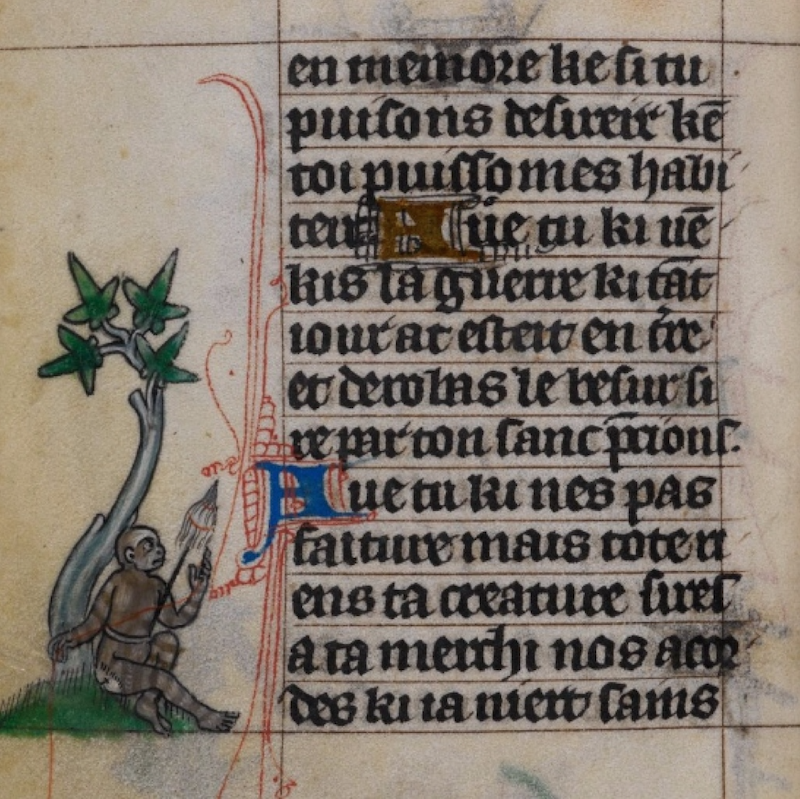 en memore ke si tu
puisons desireir kē
toi puissomes habi
teir Aue tu ki uē
kis la guerre ki tāt
iour at esteit en t̄re
et derobas le desur si
re par ton sanc p̄cious.
Aue tu ki nes pas
faiture mais toteri
ens ta creature sires
a ta merchi nos acor
des ki ia niert sains